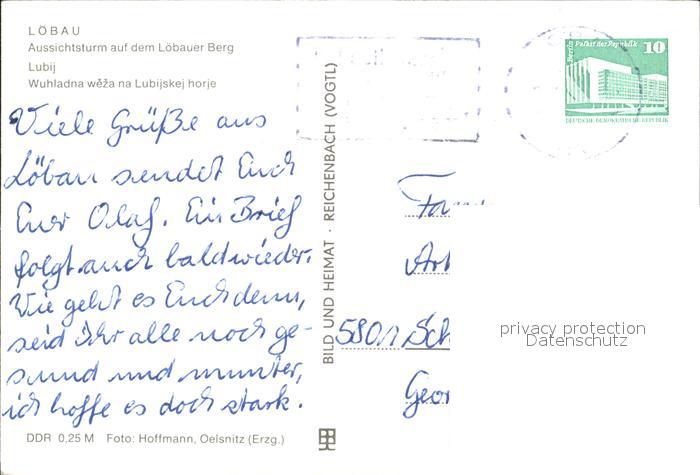 LÖBAU
Aussichtsturm auf dem Löbauer Berg
Lubij
Wuhladna wěža na Lubijskej horje
Viele Grüße aus
Löbau sendet Euch
Euer Olaf. Ein Brief
folgt auch bald wieder.
Wie geht es Euch denn,
seid Ihr alle noch ge-
sund und munter,
ich hoffe es doch stark.
DDR 0,25 M Foto: Hoffmann, Oelsnitz (Erzg.)
BILD UND HEIMAT · REICHENBACH (VOGTL)
Berlin Palast der Republik 10
DEUTSCHE DEMOKRATISCHE REPUBLIK
Fam
Art
5801 Sch
Geor
privacy protection
Datenschutz